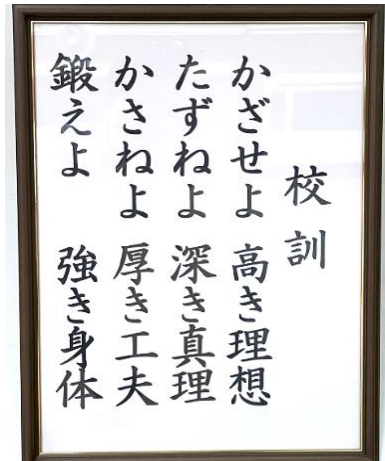 校訓
かざせよ 高き理想
たずねよ 深き真理
かさねよ 厚き工夫
鍛えよ 強き身体